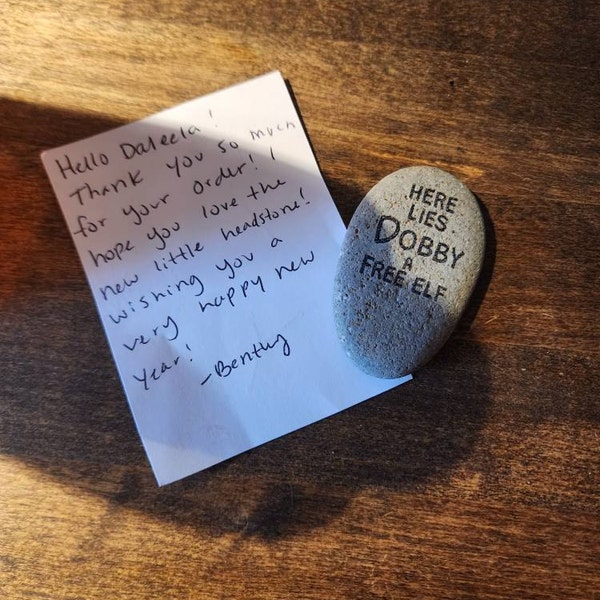 Hello Daleela!
Thank you so much
for your order! I
hope you love the
new little headstone!
wishing you a
very happy new
year!
-Bentley
HERE
LIES
DOBBY
A
FREE ELF